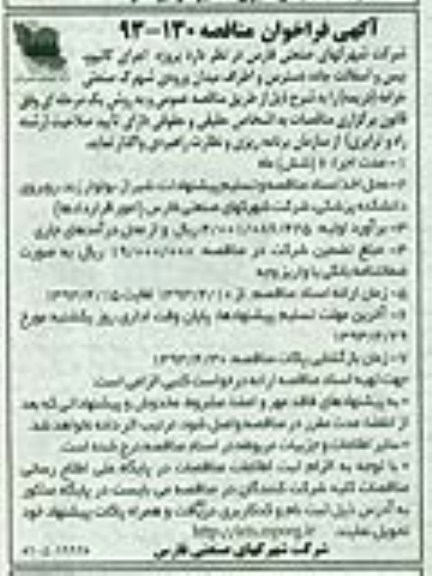 آگهی فراخوان مناقصه ۱۳۰-۹۳
شرکت شهرکهای صنعتی فارس در نظر دارد پروژه اجرای
بیس و آسفالت جاده دسترسی و اطراف میدان ورودی شهرک صنعتی
را به شرح ذیل از طریق مناقصه عمومی و به روش یک مرحله ای وفق
قانون برگزاری مناقصات به اشخاص حقیقی و حقوقی دارای تایید صلاحیت (رشته
راه و ترابری) از سازمان برنامه ریزی و نظارت راهبردی واگذار نماید.
۱- مدت اجرا: ۶ (شش) ماه
۲- محل اخذ اسناد مناقصه و تسلیم پیشنهادات: شیراز، بولوار زند، روبروی
دانشکده پزشکی، شرکت شهرکهای صنعتی فارس (امور قراردادها)
۳- برآورد اولیه: ریال و از محل درآمدهای جاری
۴- مبلغ تضمین شرکت در مناقصه: ریال به صورت
ضمانتنامه بانکی یا واریز وجه
۵- زمان ارائه اسناد مناقصه: از
۶- آخرین مهلت تسلیم پیشنهادها: پایان وقت اداری روز یکشنبه مورخ
۷- زمان بازگشایی پاکات مناقصه:
جهت تهیه اسناد مناقصه ارائه درخواست کتبی الزامی است.
• به پیشنهادهای فاقد مهر و امضا، مشروط، مخدوش و پیشنهاداتی که بعد
از انقضا مدت مقرر در مناقصه واصل شود، ترتیب اثر داده نخواهد شد.
• سایر اطلاعات و جزییات مربوطه در اسناد مناقصه درج شده است.
• با توجه به الزام ثبت اطلاعات مناقصات در پایگاه ملی اطلاع رسانی
مناقصات کلیه شرکت کنندگان در مناقصه می بایست در پایگاه مذکور
به آدرس ذیل ثبت نام و کد کاربری دریافت و همراه پاکات پیشنهاد خود
تحویل نمایند.
شرکت شهرکهای صنعتی فارس